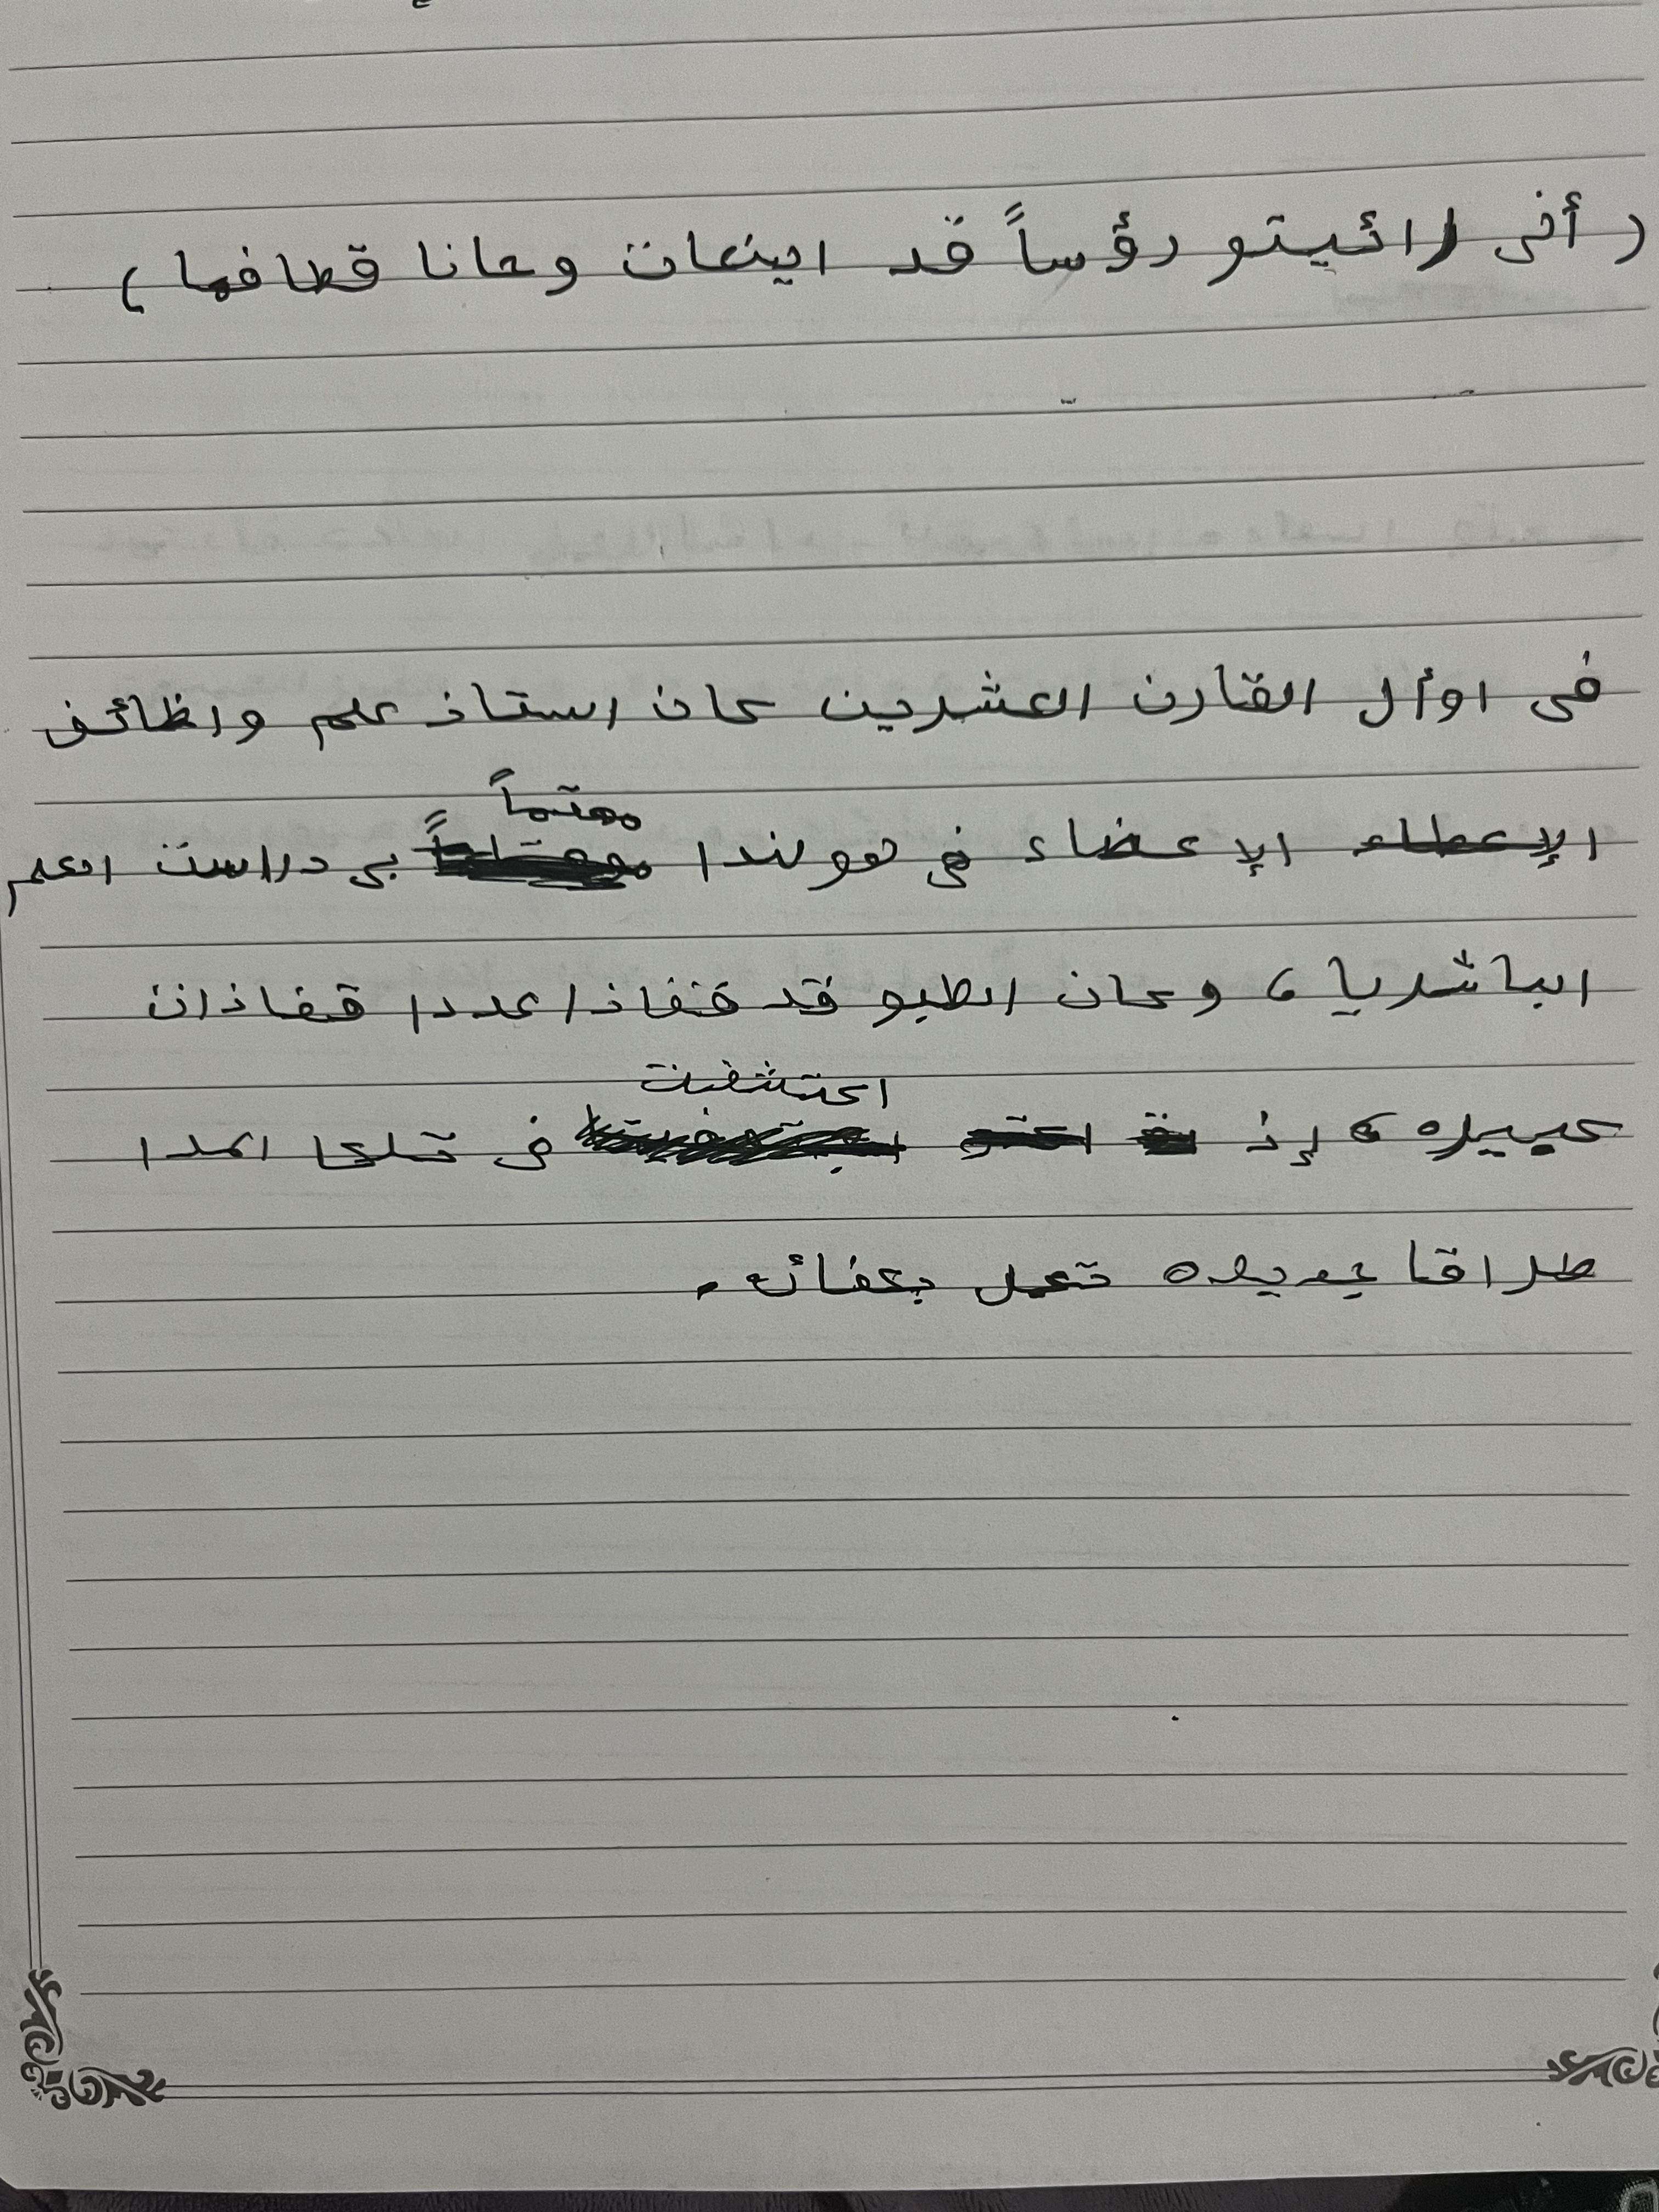 (أنى رائيتو رؤساً قد اينعات وحانا قطافها)
فى اوأل القارن العشرين كان استاذ علم واظائف
الإعطاء الإعضاء فى هولندا مهتماً بى دراست العلم
الباشريا، وكان الطبو قد قفاذا عددا قفاذات
كبييره، إذ اكتشفت فى تلكا المدا
طراقا عديده تعمل بعفائ.